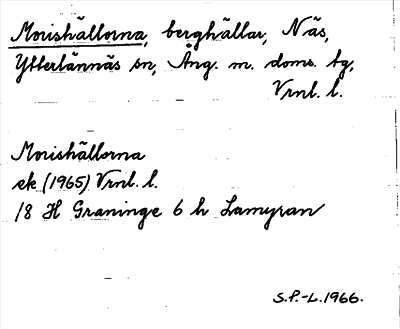 Morishällorna, berghällar, Näs,
Ytterlännäs sn, Ång. m. doms. tg,
Vrnl. l.
Morishällorna
ek (1965) Vrnl. l.
18 H Graninge 6 h Lamyran
S.P.-L. 1966.